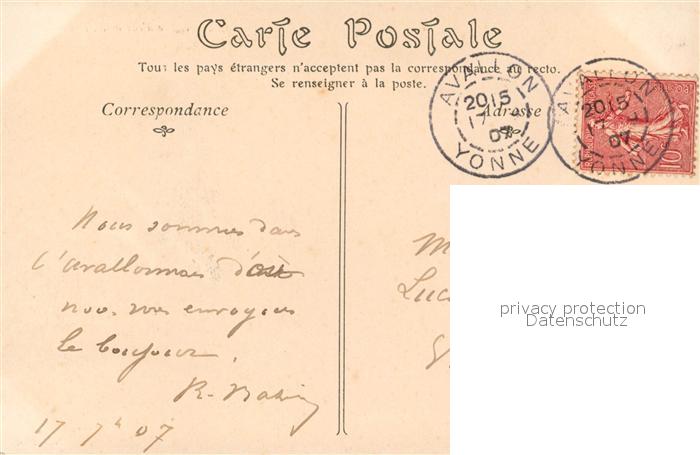 Carte Postale
Tous les pays étrangers n'acceptent pas la correspondance au recto.
Se renseigner à la poste.
Correspondance
Adresse
AVALLON
20 15
17
07
YONNE
AVALLON
20 15
07
YONNE
10
Nous sommes dans
l'avallonnais d'où
nous vous envoyons
le bonjour.
R.
17 7h 07
M
Luc
privacy protection
Datenschutz